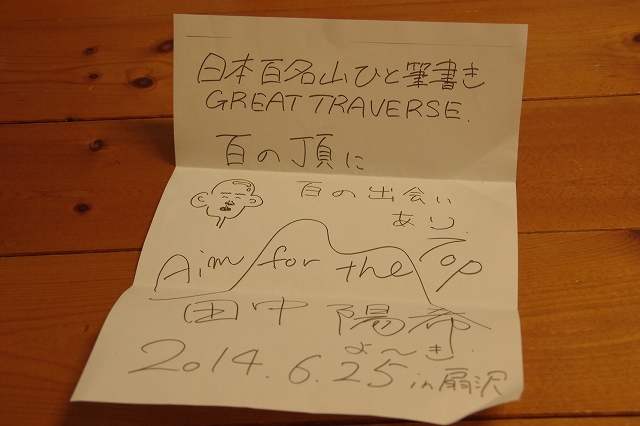 日本百名山ひと筆書き
GREAT TRAVERSE.
百の頂に
百の出会い
あり.
Aim for the Top
田中 陽希
よ〜き.
2014.6.25 in扇沢